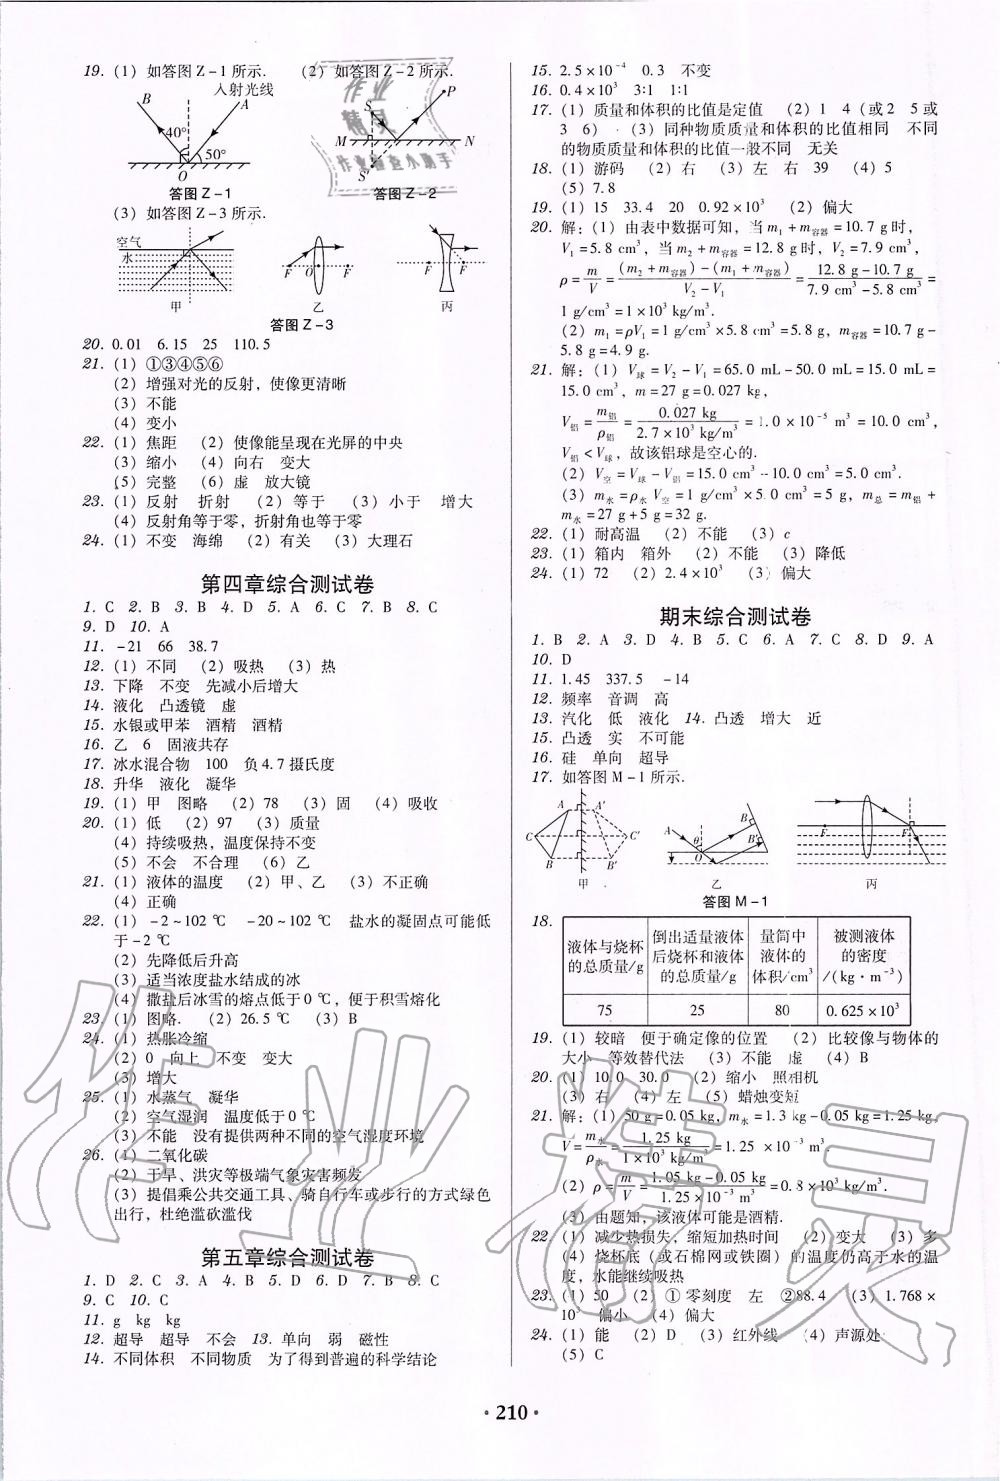 19. (1) 如答图 Z-1 所示. (2) 如答图 Z-2 所示.
入射光线
B A 40° 50° O
答图 Z-1
S P M N S′
答图 Z-2
(3) 如答图 Z-3 所示.
空气
水
甲
F O F
乙
F F
丙
答图 Z-3
20. 0.01 6.15 25 110.5
21. (1) ①③④⑤⑥
(2) 增强对光的反射，使像更清晰
(3) 不能
(4) 变小
22. (1) 焦距 (2) 使像能呈现在光屏的中央
(3) 缩小 (4) 向右 变大
(5) 完整 (6) 虚 放大镜
23. (1) 反射 折射 (2) 等于 (3) 小于 增大
(4) 反射角等于零，折射角也等于零
24. (1) 不变 海绵 (2) 有关 (3) 大理石
第四章综合测试卷
1. C 2. B 3. B 4. D 5. A 6. C 7. B 8. C
9. D 10. A
11. -21 66 38.7
12. (1) 不同 (2) 吸热 (3) 热
13. 下降 不变 先减小后增大
14. 液化 凸透镜 虚
15. 水银或甲苯 酒精 酒精
16. 乙 6 固液共存
17. 冰水混合物 100 负 4.7 摄氏度
18. 升华 液化 凝华
19. (1) 甲 图略 (2) 78 (3) 固 (4) 吸收
20. (1) 低 (2) 97 (3) 质量
(4) 持续吸热，温度保持不变
(5) 不会 不合理 (6) 乙
21. (1) 液体的温度 (2) 甲、乙 (3) 不正确
(4) 正确
22. (1) -2~102 ℃ -20~102 ℃ 盐水的凝固点可能低
于 -2 ℃
(2) 先降低后升高
(3) 适当浓度盐水结成的冰
(4) 撒盐后冰雪的熔点低于 0 ℃，便于积雪熔化
23. (1) 图略. (2) 26.5 ℃ (3) B
24. (1) 热胀冷缩
(2) 0 向上 不变 变大
(3) 增大
25. (1) 水蒸气 凝华
(2) 空气湿润 温度低于 0 ℃
(3) 不能 没有提供两种不同的空气湿度环境
26. (1) 二氧化碳
(2) 干旱、洪灾等极端气象灾害频发
(3) 提倡乘公共交通工具、骑自行车或步行的方式绿色
出行，杜绝滥砍滥伐
第五章综合测试卷
1. D 2. C 3. A 4. B 5. D 6. D 7. B 8. C
9. C 10. C
11. g kg kg
12. 超导 超导 不会 13. 单向 弱 磁性
14. 不同体积 不同物质 为了得到普遍的科学结论
15. 2.5×10⁻⁴ 0.3 不变
16. 0.4×10³ 3∶1 1∶1
17. (1) 质量和体积的比值是定值 (2) 1 4 (或 2 5 或
3 6) (3) 同种物质质量和体积的比值相同 不同
的物质质量和体积的比值一般不同 无关
18. (1) 游码 (2) 右 (3) 左 右 39 (4) 5
(5) 7.8
19. (1) 15 33.4 20 0.92×10³ (2) 偏大
20. 解：(1) 由表中数据可知，当 m₁+m容器=10.7 g 时，
V₁=5.8 cm³，当 m₂+m容器=12.8 g 时，V₂=7.9 cm³，
ρ=m/V=((m₂+m容器)-(m₁+m容器))/(V₂-V₁)=(12.8 g-10.7 g)/(7.9 cm³-5.8 cm³)=
1 g/cm³=1×10³ kg/m³.
(2) m₁=ρV₁=1 g/cm³×5.8 cm³=5.8 g，m容器=10.7 g-
5.8 g=4.9 g.
21. 解：(1) V球=V₂-V₁=65.0 mL-50.0 mL=15.0 mL=
15.0 cm³，m=27 g=0.027 kg，
V铝=m铝/ρ铝=0.027 kg/(2.7×10³ kg/m³)=1.0×10⁻⁵ m³=10.0 cm³，
V铝<V球，故该铝球是空心的.
(2) V空=V球-V铝=15.0 cm³-10.0 cm³=5.0 cm³.
(3) m水=ρ水V空=1 g/cm³×5.0 cm³=5 g，m总=m铝+
m水=27 g+5 g=32 g.
22. (1) 耐高温 (2) 不能 (3) c
23. (1) 箱内 箱外 (2) 不能 (3) 降低
24. (1) 72 (2) 2.4×10³ (3) 偏大
期末综合测试卷
1. B 2. A 3. D 4. B 5. C 6. A 7. C 8. D 9. A
10. D
11. 1.45 337.5 -14
12. 频率 音调 高
13. 汽化 低 液化 14. 凸透 增大 近
15. 凸透 实 不可能
16. 硅 单向 超导
17. 如答图 M-1 所示.
A A′ C C′ B B′
甲
A θ O B B′
乙
F F
丙
答图 M-1
18.
液体与烧杯的总质量/g 倒出适量液体后烧杯和液体的总质量/g 量筒中液体的体积/cm³ 被测液体的密度/(kg·m⁻³)
75 25 80 0.625×10³
19. (1) 较暗 便于确定像的位置 (2) 比较像与物体的
大小 等效替代法 (3) 不能 虚 (4) B
20. (1) 10.0 30.0 (2) 缩小 照相机
(3) 右 (4) 左 (5) 蜡烛变短
21. 解：(1) 50 g=0.05 kg，m水=1.3 kg-0.05 kg=1.25 kg，
V=m水/ρ水=1.25 kg/(1×10³ kg/m³)=1.25×10⁻³ m³.
(2) ρ=m/V=(1.05 kg-0.05 kg)/(1.25×10⁻³ m³)=0.8×10³ kg/m³.
(3) 由题知，该液体可能是酒精.
22. (1) 减少热损失，缩短加热时间 (2) 变大 (3) 多
(4) 烧杯底（或石棉网或铁圈）的温度仍高于水的温
度，水能继续吸热
23. (1) 50 (2) ① 零刻度 左 ②88.4 (3) 1.768×
10³ 偏小 (4) 偏大
24. (1) 能 (2) D (3) 红外线 (4) 声源处
(5) C
· 210 ·
作业精灵
作业
精灵
作业检查小助手